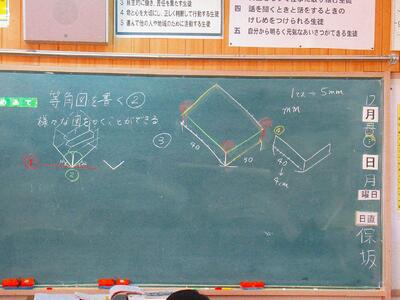 3 自主的に働き、責任を果たす生徒
4 命と心を大切にし、正しく判断して行動する生徒
5 進んで他の人や地域のために活動する生徒
四 話を聞くときと話をするときの
けじめをつけられる生徒
五 自分から明るく元気なあいさつができる生徒
めあて
等角図を書く②
様々な図をかくことができる
①
②
③
40
50
1マス→5mm
mm
④
40
↓
4cm
12
月
日
月
曜日
日直
保
坂